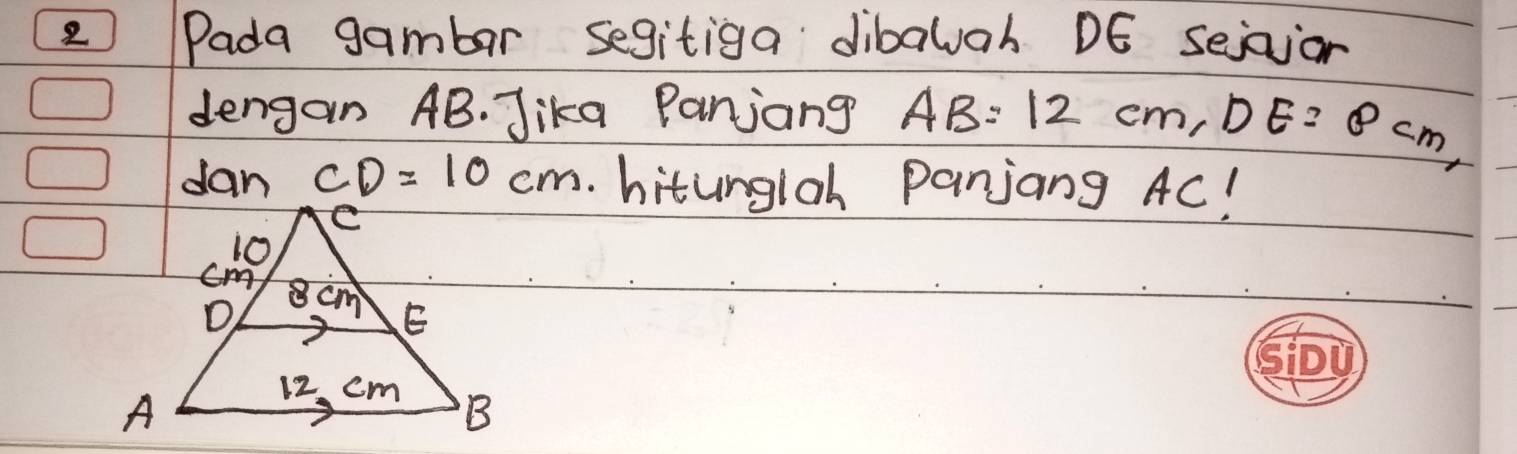 2 Pada gambar segitiga dibawah DE sejajar
dengan AB. Jika Panjang AB = 12 cm, DE = 8 cm,
dan CD = 10 cm. hitunglah Panjang AC!
C
10
cm
8 cm
D
E
12 cm
A
B
SiDU